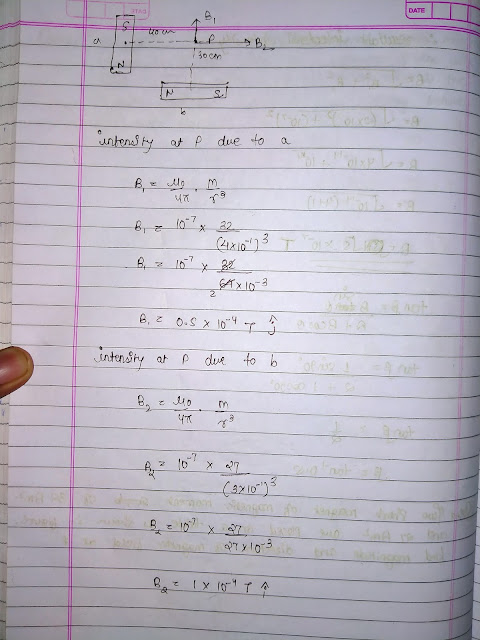 DATE
S
a
N
40 cm
B₁
P
B₂
30 cm
N S
b
intensity at P due to a
B₁ = μ₀/4π . m/r³
B₁ = 10⁻⁷ × 32/(4×10⁻¹)³
B₁ = 10⁻⁷ × 32/64×10⁻³ 2
B₁ = 0.5 × 10⁻⁴ T ĵ
intensity at P due to b
B₂ = μ₀/4π . m/r³
B₂ = 10⁻⁷ × 27/(3×10⁻¹)³
B₂ = 10⁻⁷ × 27/27×10⁻³
B₂ = 1 × 10⁻⁴ T î